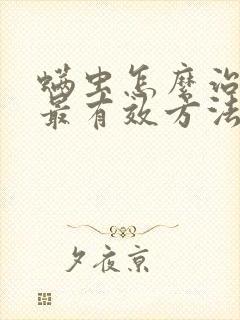 螨虫怎麽治
最有效方法
夕夜京